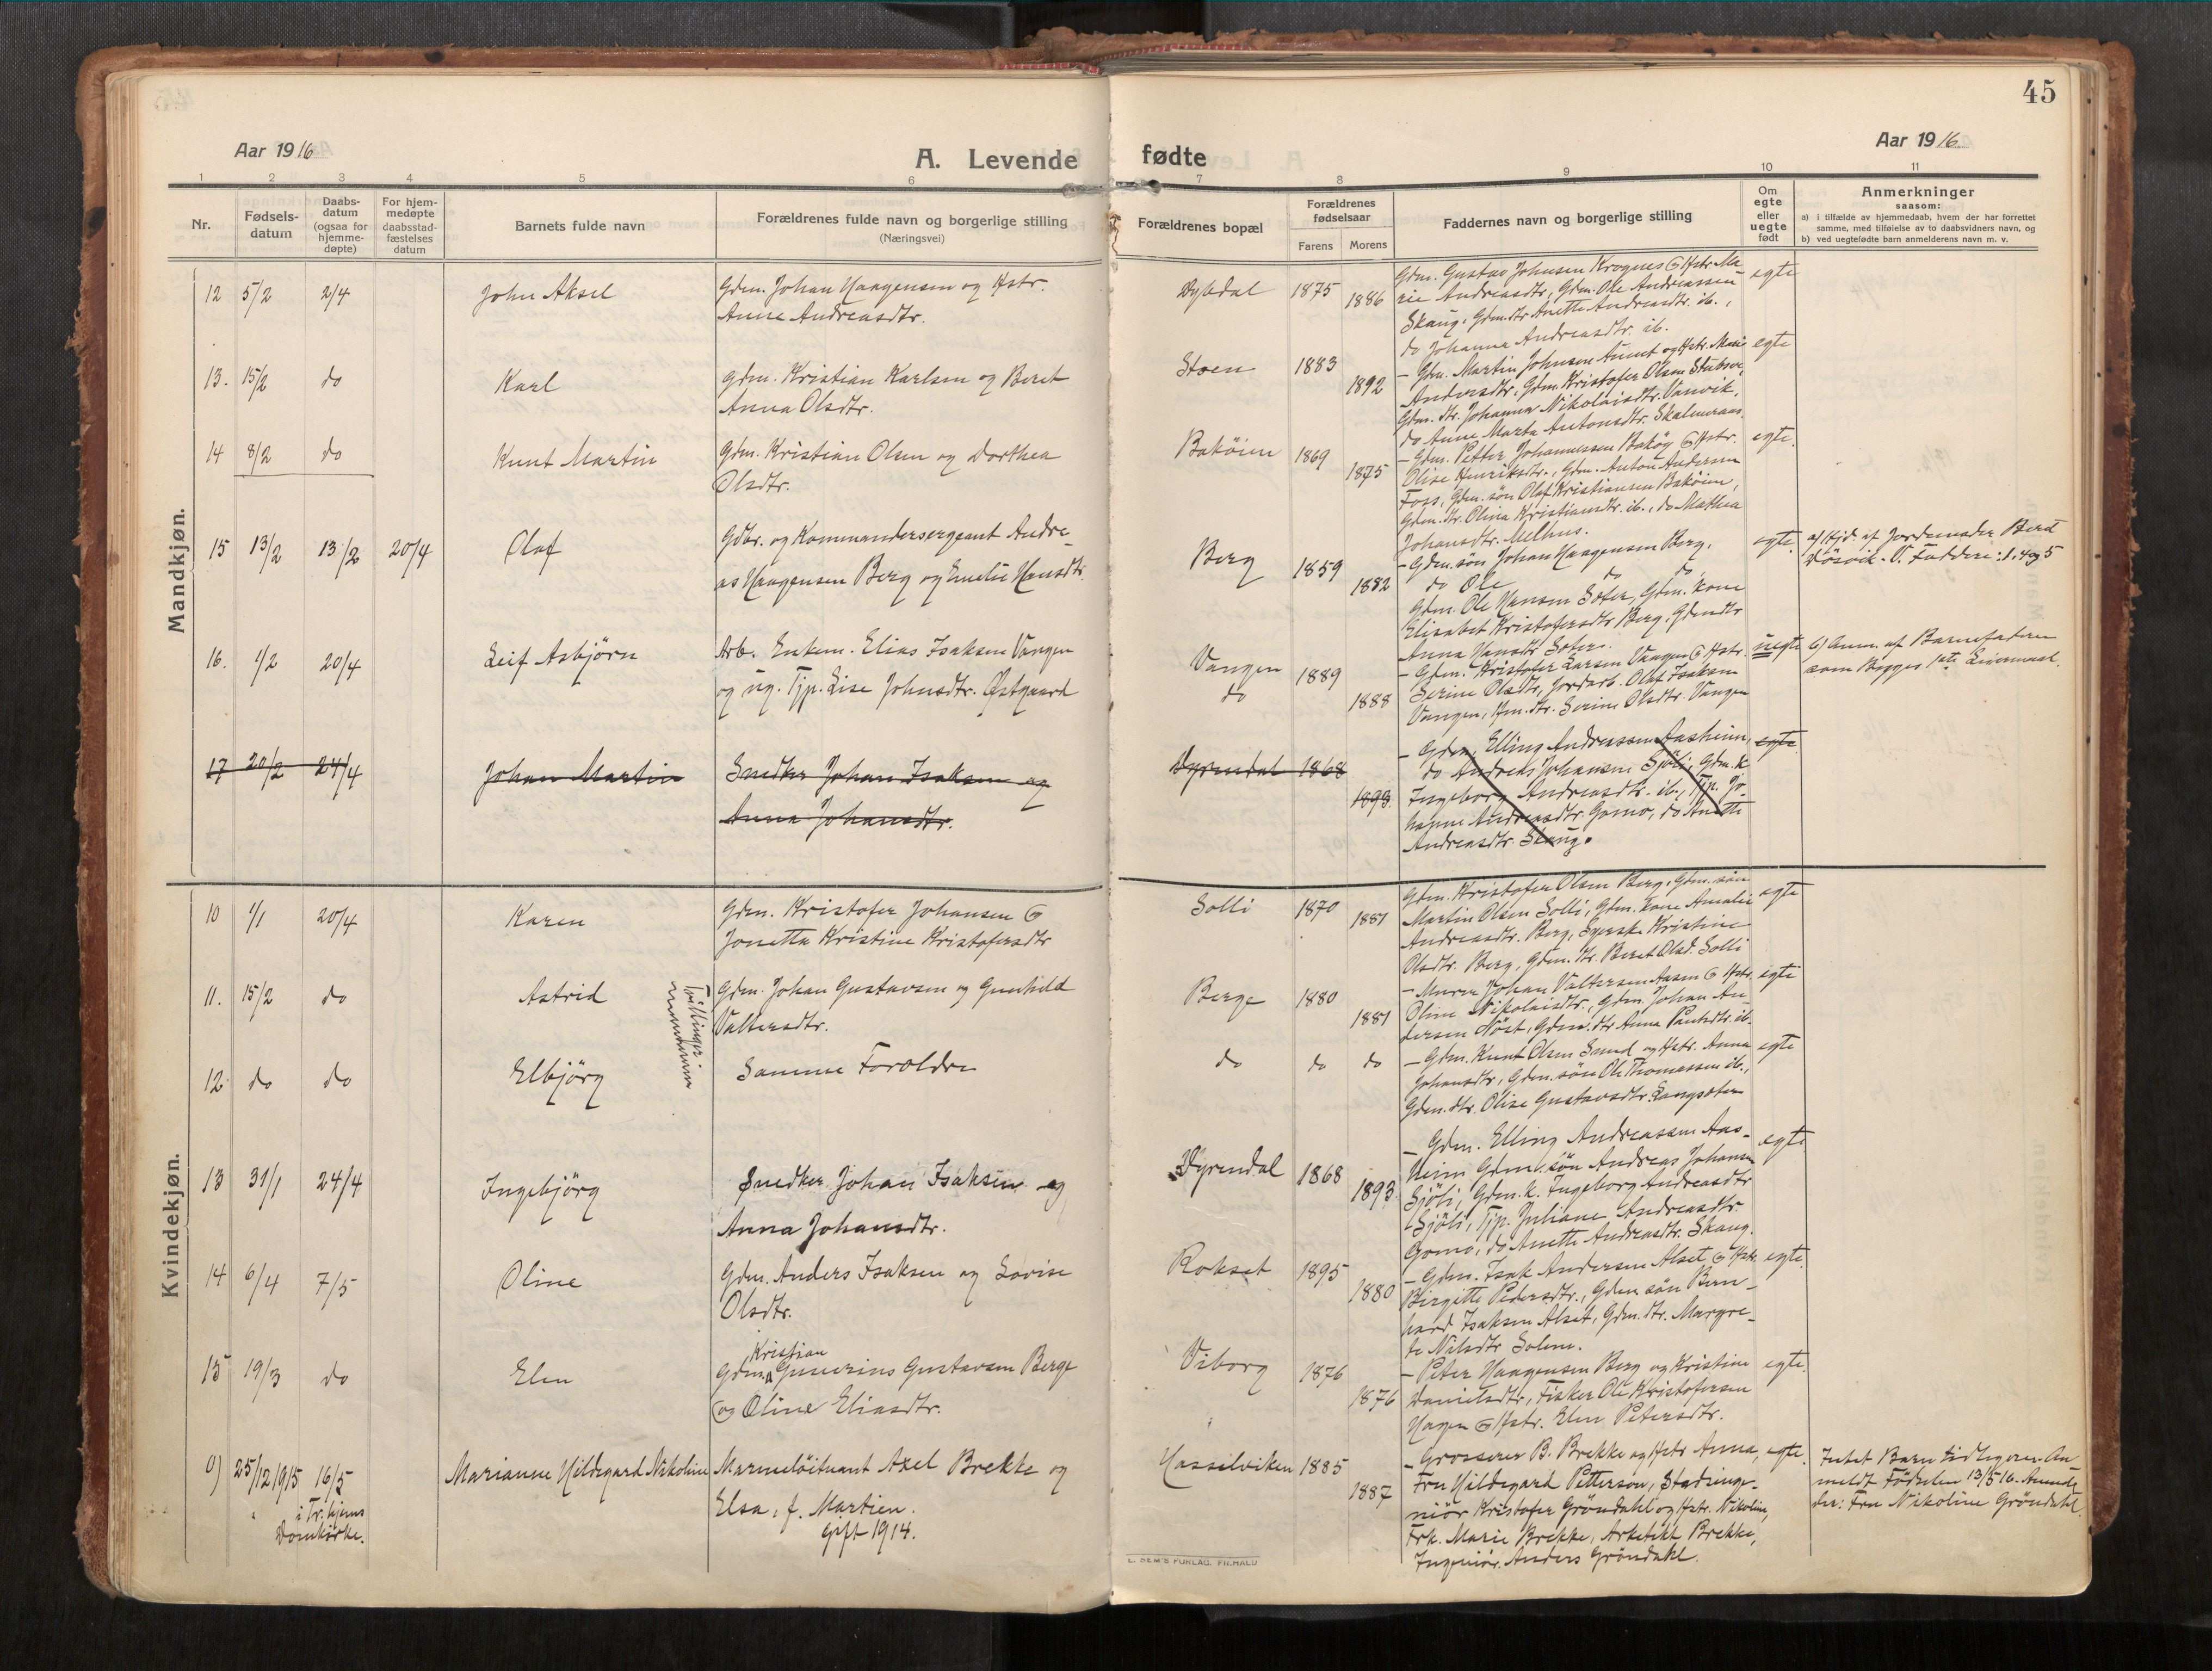 45
Aar 1916
A. Levende fødte
Aar 1916.
1 2 3 4 5 6 7 8 9 10 11
Nr.
Fødsels-
datum
Daabs-
datum
(ogsaa for
hjemme-
døpte)
For hjem-
medøpte
daabsstad-
fæstelses
datum
Barnets fulde navn
Forældrenes fulde navn og borgerlige stilling
(Næringsvei)
Forældrenes bopæl
Forældrenes
fødselsaar
Farens Morens
Faddernes navn og borgerlige stilling
Om
egte
eller
uegte
født
Anmerkninger
saasom:
a) i tilfælde av hjemmedaab, hvem der har forrettet
samme, med tilføielse av to daabsvidners navn, og
b) ved uegtefødte barn anmelderens navn m. v.
Mandkjøn.
12 5/2 2/4 John Aksel
Gdm. Johan Haagensen og Hstr.
Anne Andreasdtr.
Dybdal 1875 1886
Gdm. Gustav Johnsen Krognes & Hstr. Ma-
rie Andreasdtr., Gdm. Ole Andreassen
Skaug, Gdm.dtr Anette Andreasdtr. ib.,
do Johanna Andreasdtr. ib.
egte
13. 15/2 do Karl
Gdm. Kristian Karlsen og Beret
Anna Olsdtr.
Stoen 1883 1892
- Gdm. Martin Johnsen Aunet og Hstr. Marie
Andersdtr., Gdm. Kristofer Olsen
Gdm. dtr. Johanna Nikolaisdtr. Vanvik,
do Anne Marta Antonsdtr.
egte
14 8/2 do Knut Martin
Gdm. Kristian Olsen og Dorthea
Olsdtr.
Bakøien 1869 1875
- Gdm. Petter Johannessen Bakøy & Hstr.
Olise Henriksdtr., Gdm. Anton Andersen
Foss, Gdm. søn Olaf Kristiansen Bakøien,
Gdm. dtr. Olina Kristiansdtr. ib., do Mathea
Johansdtr. Melhus.
egte.
15 13/2 13/2 20/4 Olaf
Gdbr. og Kommandersergeant Andre-
as Haagensen Berg og Emelie Hansdtr.
Berg 1859 1882
- Gdm. søn Johan Haagensen Berg,
do Ole do do
Gdm. Ole Hansen Sæter, Gdm. kone
Elisabet Kristofersdtr Berg, Gdmdtr
Anna Hansdtr Sæter.
egte.
a) Hjd. af Jordemoder Berit
Døsvik. V. Faddere: 1. 4 og 5
16. 1/2 20/4 Leif Asbjørn
Arb. Enkem. Elias Isaksen Vangen
og ug. Tjp. Lise Johnsdtr. Østgaard
Vangen
do
1889 1888
- Gdm. Kristofer Larsen Vangen & Hstr.
Serine Olsdtr, Jordarb. Olaf Isaksen
Vangen, Hm. dtr. Serine Olsdtr. Vangen
uegte
b) Anm. af Barnefaderen
som Begges 1ste Leiermaal.
17 20/2 24/4 Johan Martin
Snedker Johan Isaksen og
Anna Johansdtr.
Dyrendal 1868 1893.
- Gdm. Elling Andreassen Aasheim,
do Andreas Johansen Sjøli, Gdm. k.
Ingeborg Andreasdtr. ib., Tjp. Jo-
hanne Andreasdtr. Gomo, do Anette
Andreasdtr. Skaug.
egte
Kvindekjøn.
10 1/1 20/4 Karen
Gdm. Kristofer Johansen &
Jonetta Kristine Kristofersdtr
Solli 1870 1881
Gdm. Kristofer Olsen Berg, Gdm. søn
Martin Olsen Solli, Gdm. kone Amalie
Andreasdtr. Berg, Syerske Kristine
Olsdtr. Berg, Gdm. dtr. Beret Olsd. Solli
egte
11. 15/2 do Astrid
Tvillinger
Gdm. Johan Gustavsen og Gunhild
Valtersdtr.
Berge 1880 1881
- Murer Johan Valtersen Aasen & Hstr.
Oline Nikolaisdtr., Gdm. Johan An-
dersen Nøst, Gdm. dtr Anna Paulsdtr. ib.
egte
12 do do Elbjørg
Samme Forældre
do do do
- Gdm. Knut Olsen Sund og Hstr. Anna
Johansdtr, Gdm. søn Ole Thomassen ib.,
Gdm. dtr. Olise Gustavsdtr. Langsæter
egte
13 31/1 24/4 Ingebjørg
Snedker Johan Isaksen og
Anna Johansdtr.
Dyrendal 1868 1893
- Gdm. Elling Andreassen Aas-
heim, Gdm. søn Andreas Johansen
Sjøli, Gdm. k. Ingeborg Andreasdtr
Sjøli, Tjp. Juliane Andreasdtr.
Gomo, do Anette Andreasdtr. Skaug.
egte
14 6/4 7/5 Oline
Gdm. Anders Isaksen og Lovise
Olsdtr.
Rokset 1895 1880
- Gdm. Isak Andersen Alset & Hstr.
Birgitte Pedersdtr., Gdm. søn Bern-
hard Isaksen Alset, Gdm. dtr. Margre-
te Nilsdtr Solem.
egte.
15 19/3 do Elen
Kristian
Gdm. Gunerius Gustavsen Berge
og Oline Eliasdtr.
Viborg 1876 1876
- Peter Haagensen Berg og Kristine
Danielsdtr, Fisker Ole Kristofersen
Hagen & Hstr. Elen Petersdtr.
egte.
0) 25/12 1915 16/5
i Tr.hjems
Domkirke.
Marianne Hildegard Nikoline
Marineløitnant Axel Brekke og
Elsa, f. Martien.
gift 1914.
Hasselviken 1885 1887
- Grosserer B. Brekke og Hstr Anna,
Fru Hildegard Petterson, Stadsinge-
niør Kristofer Grøndahl og Hstr. Nikoline,
Frk. Marie Brekke, Arkitekt Brekke,
Ingeniør. Anders Grøndahl.
egte.
Intet Barn tidligere. An-
meldt Fødselen 13/5 16. Anmel-
der: Fru Nikoline Grøndahl.
E. SEM'S FORLAG, FR.HALD